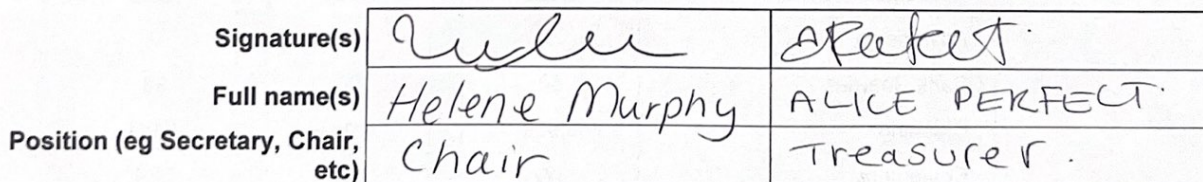 Signature(s)
Full name(s) Helene Murphy ALICE PERFECT.
Position (eg Secretary, Chair, etc) Chair Treasurer.